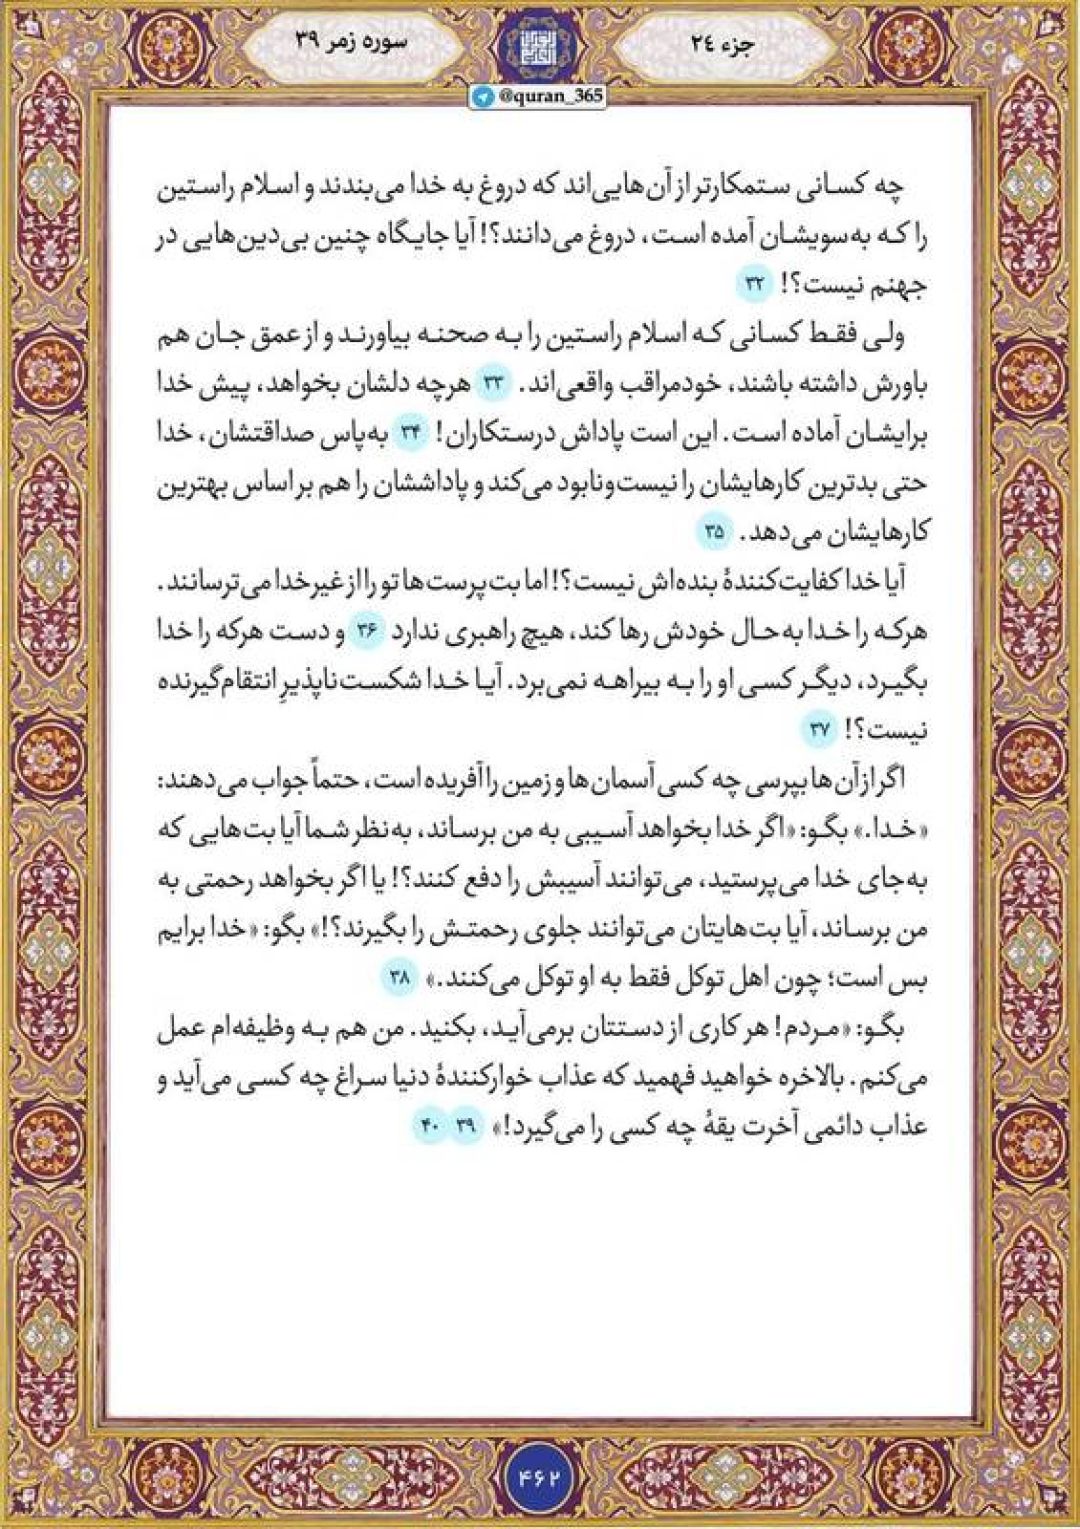 جزء ٢٤
سوره زمر ٣٩
@quran_365
چه کسانی ستمکارتر از آن‌هایی‌اند که دروغ به خدا می‌بندند و اسلام راستین
را که به‌سویشان آمده است، دروغ می‌دانند؟! آیا جایگاه چنین بی‌دین‌هایی در
جهنم نیست؟! ۳۲
ولی فقط کسانی که اسلام راستین را به صحنه بیاورند و از عمق جان هم
باورش داشته باشند، خودمراقب واقعی‌اند. ۳۳ هرچه دلشان بخواهد، پیش خدا
برایشان آماده است. این است پاداش درستکاران! ۳۴ به‌پاس صداقتشان، خدا
حتی بدترین کارهایشان را نیست‌ونابود می‌کند و پاداششان را هم بر اساس بهترین
کارهایشان می‌دهد. ۳۵
آیا خدا کفایت‌کنندهٔ بنده‌اش نیست؟! اما بت‌پرست‌ها تو را از غیرخدا می‌ترسانند.
هرکه را خدا به‌حال خودش رها کند، هیچ راهبری ندارد ۳۶ و دست هرکه را خدا
بگیرد، دیگر کسی او را به بیراهه نمی‌برد. آیا خدا شکست‌ناپذیرِ انتقام‌گیرنده
نیست؟! ۳۷
اگر از آن‌ها بپرسی چه کسی آسمان‌ها و زمین را آفریده است، حتماً جواب می‌دهند:
«خدا.» بگو: «اگر خدا بخواهد آسیبی به من برساند، به‌نظر شما آیا بت‌هایی که
به‌جای خدا می‌پرستید، می‌توانند آسیبش را دفع کنند؟! یا اگر بخواهد رحمتی به
من برساند، آیا بت‌هایتان می‌توانند جلوی رحمتش را بگیرند؟!» بگو: «خدا برایم
بس است؛ چون اهل توکل فقط به او توکل می‌کنند.» ۳۸
بگو: «مردم! هر کاری از دستتان برمی‌آید، بکنید. من هم به وظیفه‌ام عمل
می‌کنم. بالاخره خواهید فهمید که عذاب خوارکنندهٔ دنیا سراغ چه کسی می‌آید و
عذاب دائمی آخرت یقهٔ چه کسی را می‌گیرد!» ۳۹ ۴۰
۴۶۲